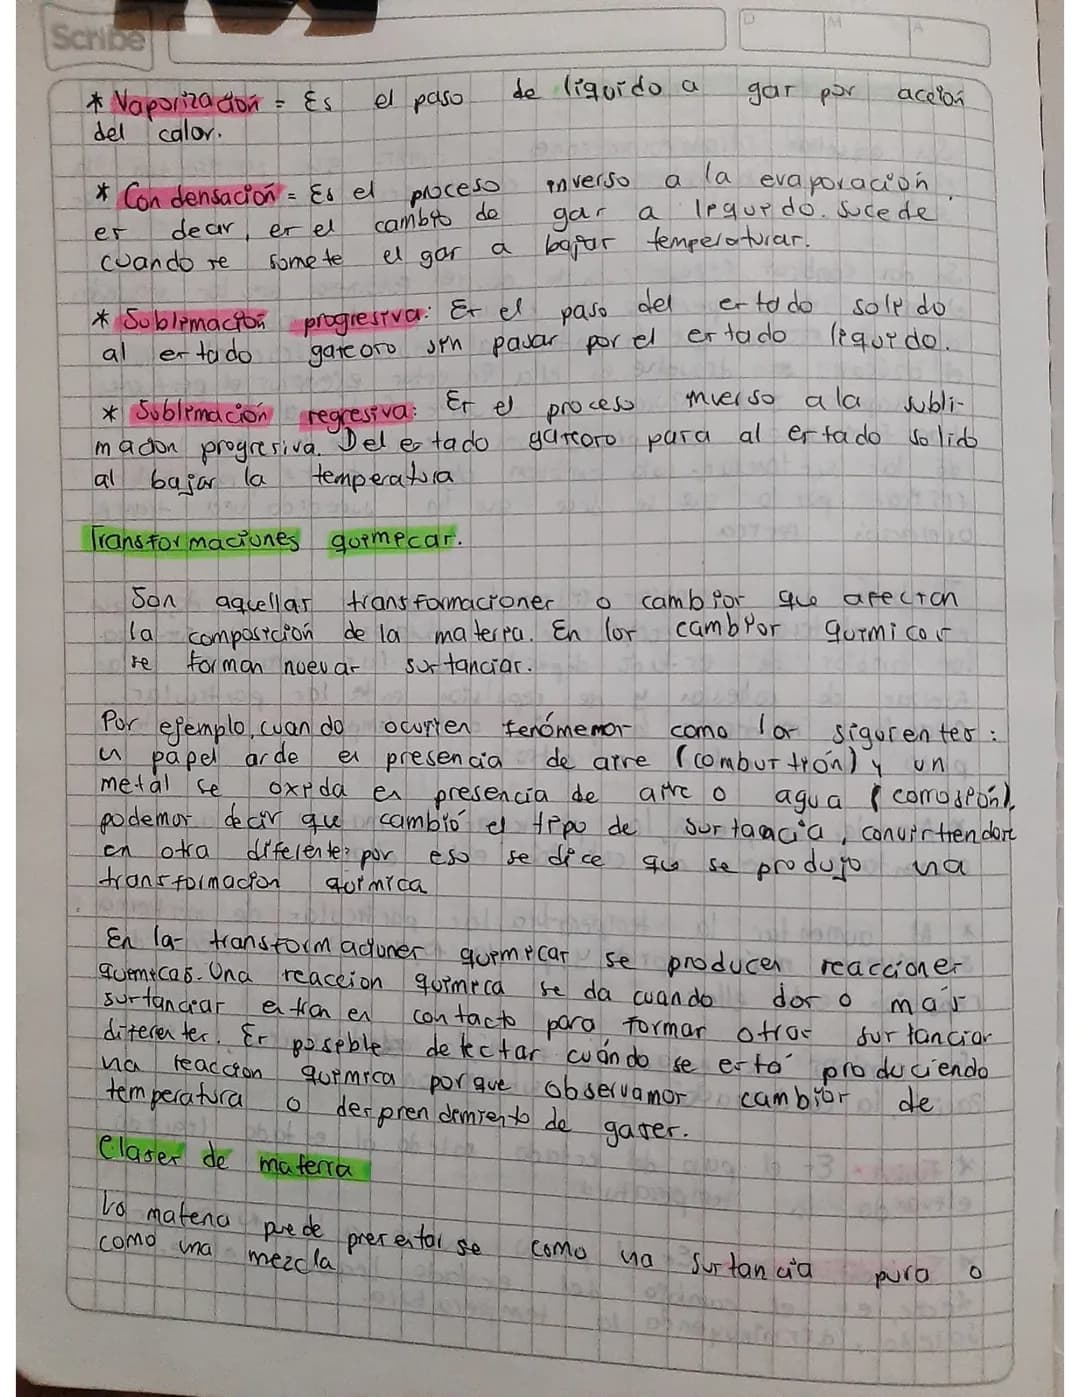 Scribe
D M A
* Vaporización = Es el paso de líquido a gas por acción
del calor.
* Condensación = Es el proceso inverso a la evaporación
es decir, es el cambio de gas a liquido. Sucede
cuando se somete el gas a bajas temperaturas.
* Sublimación progresiva: Es el paso del estado solido
al estado gaseoso sin pasar por el estado liquido.
* Sublimación regresiva: Es el proceso inverso a la subli-
macion progresiva. Del estado gaseoso para al estado solido
al bajar la temperatura
Transformaciones quimicas.
Son aquellas transformaciones o cambios que afectan
la composición de la materia. En los cambios quimicos
se forman nuevas sustancias.
Por ejemplo, cuando ocurren fenómenos como los siguientes:
un papel arde en presencia de aire (combustión) y un
metal se oxida en presencia de aire o agua (corrosión),
podemos decir que cambió el tipo de sustancia, convirtiendose
en otra diferente: por eso se dice que se produjo una
transformacion quimica
En las transformaciones quimicas se producen reacciones
quimicas. Una reaccion quimica se da cuando dos o más
sustancias entran en contacto para formar otras sustancias
diferentes. Es posible detectar cuándo se está produciendo
una reaccion quimica porque observamos cambios de
temperatura o desprendimiento de gases.
Clases de materia
La materia puede presentarse como una sustancia pura o
como una mezcla